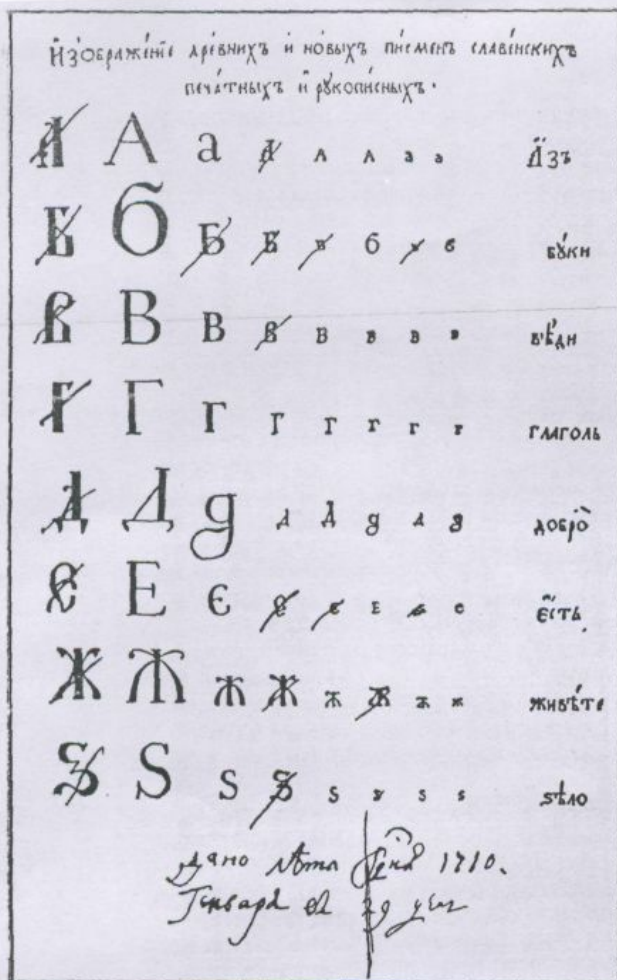 Изображе́нїе дре́внихъ и҆ но́выхъ пи́сменъ славе́нскихъ
печа́тныхъ и҆ рꙋкопи́сныхъ.
А А а А а а а а А҆́зъ
Б б Б Б в б в б бꙋ́ки
В В В В В в в в вѣ́ди
Г Г Г Г Г Г г г глаголь
Д Д д д Д д д д добро̀
Є Е є є є Е є е є҆́сть
Ж Ж ж Ж ж Ж ж ж живѣ́те
Ѕ Ѕ Ѕ Ѕ Ѕ ѕ ѕ ѕ ѕѣло
дано лѣта 1710.
Генваря въ 29 день